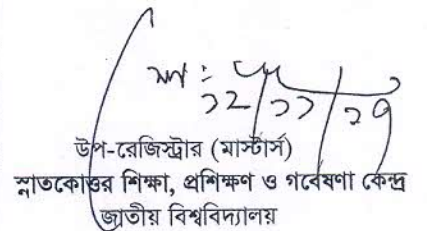 স্বাঃ
১২/১১/১৭
উপ-রেজিস্ট্রার (মাস্টার্স)
স্নাতকোত্তর শিক্ষা, প্রশিক্ষণ ও গবেষণা কেন্দ্র
জাতীয় বিশ্ববিদ্যালয়